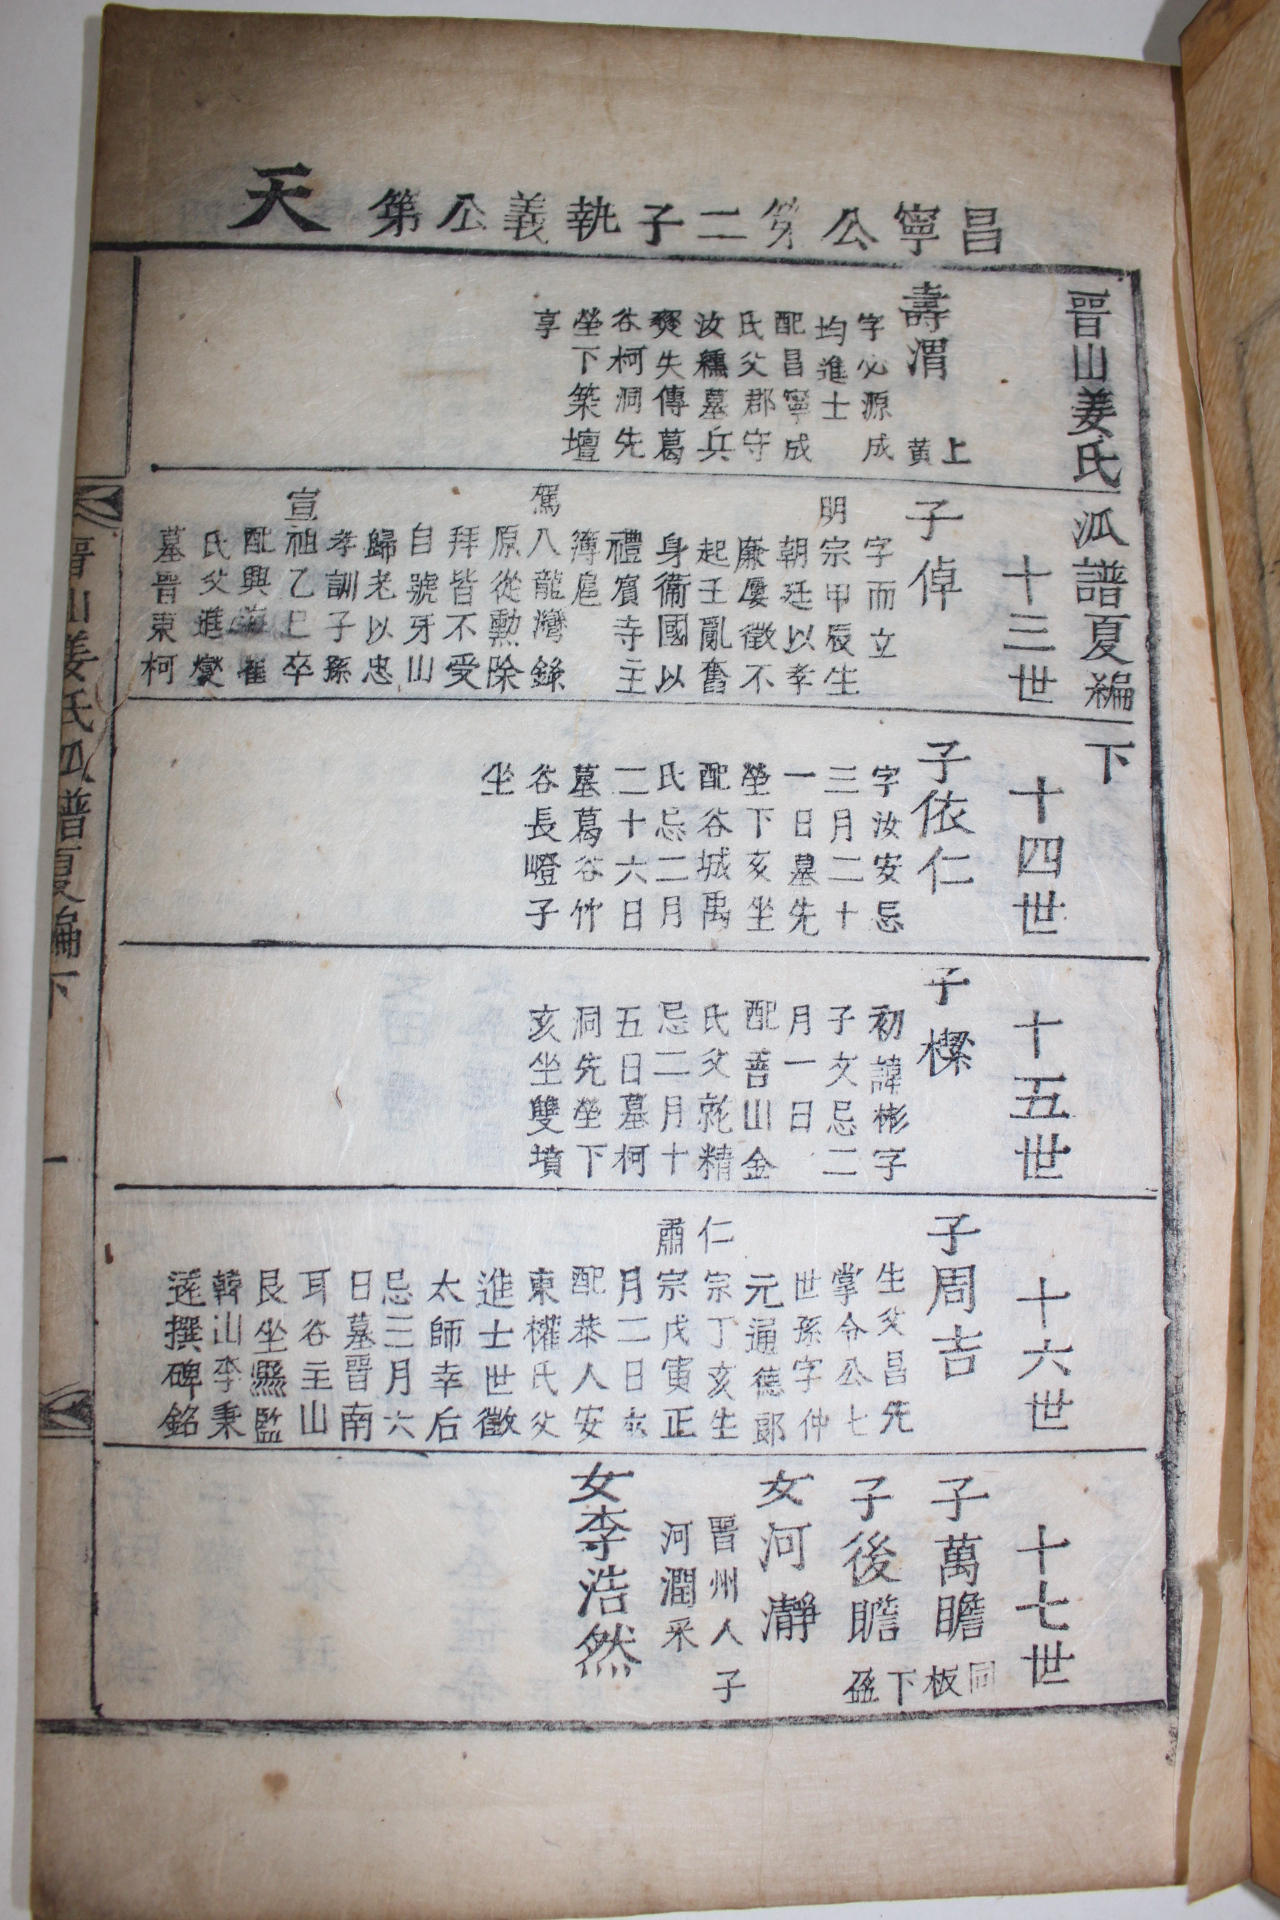 昌寧公第二子執義公第
天
晉山姜氏派譜夏編下
壽渭
上
黃
字必源成
均進士
配昌寧成
氏父郡守
汝𪏆墓兵
燹失傳葛
谷柯洞先
塋下築壇
享
十三世
子倬
字而立
明宗甲辰生
朝廷以孝
廉屢徵不
起壬亂奮
身衛國以
禮賓寺主
簿扈
駕入龍灣錄
原從勲除
拜皆不受
自號牙山
歸老以忠
孝訓子孫
宣祖乙巳卒
配興海崔
氏父進燮
墓晉東柯
十四世
子依仁
字汝安忌
三月二十
一日墓先
塋下亥坐
配谷城禹
氏忌二月
二十六日
墓葛谷竹
谷長嶝子
坐
十五世
子櫟
初諱彬字
子文忌二
月一日
配善山金
氏父乾精
忌二月十
五日墓柯
洞先塋下
亥坐雙墳
十六世
子周吉
生父昌先
掌令公七
世孫字仲
元通德郞
仁宗丁亥生
肅宗戊寅正
月二日卒
配恭人安
東權氏父
進士世徵
太師幸后
忌三月六
日墓晉南
耳谷主山
艮坐縣監
韓山李秉
遂撰碑銘
十七世
子萬瞻
同板
子後瞻
下盈
女河瀞
晉州人子
河潤采
女李浩然
晉山姜氏派譜夏編下
一